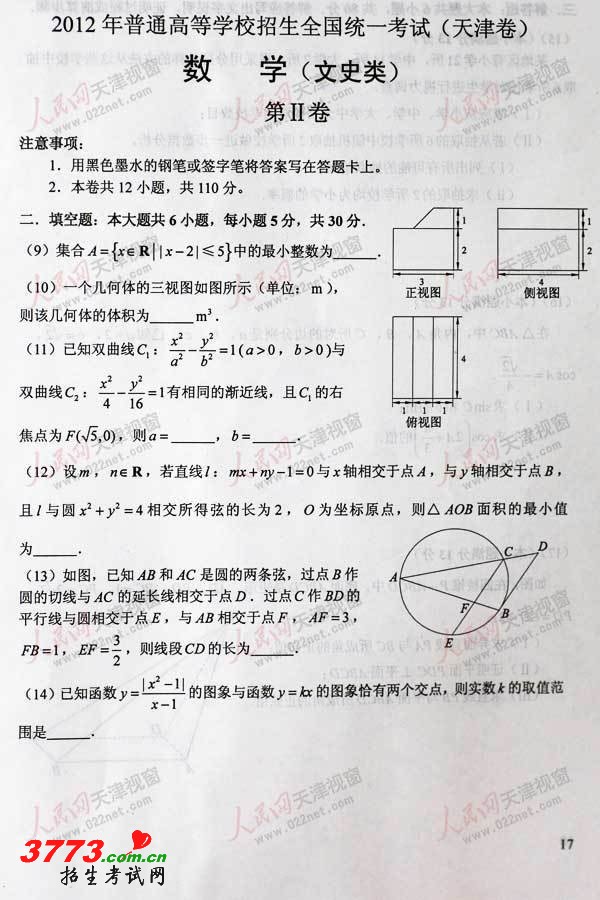 2012年普通高等学校招生全国统一考试（天津卷）
数 学（文史类）
第Ⅱ卷
注意事项：
1．用黑色墨水的钢笔或签字笔将答案写在答题卡上。
2．本卷共12小题，共110分。
二．填空题：本大题共6小题，每小题5分，共30分．
（9）集合A={x∈R||x−2|≤5}中的最小整数为______．
（10）一个几何体的三视图如图所示（单位：m），
则该几何体的体积为______m³．
1
2
3
正视图
1
2
4
侧视图
4
1 1 1
俯视图
（11）已知双曲线C₁：x²/a²−y²/b²=1(a>0，b>0)与
双曲线C₂：x²/4−y²/16=1有相同的渐近线，且C₁的右
焦点为F(√5,0)，则a=______，b=______．
（12）设m，n∈R，若直线l：mx+ny−1=0与x轴相交于点A，与y轴相交于点B，
且l与圆x²+y²=4相交所得弦的长为2，O为坐标原点，则△AOB面积的最小值
为______．
（13）如图，已知AB和AC是圆的两条弦，过点B作
圆的切线与AC的延长线相交于点D．过点C作BD的
平行线与圆相交于点E，与AB相交于点F，AF=3，
FB=1，EF=3/2，则线段CD的长为______．
A
B
C
D
E
F
（14）已知函数y=|x²−1|/(x−1)的图象与函数y=kx的图象恰有两个交点，则实数k的取值范
围是______．
17
人民网天津视窗
www.022net.com
3773.com.cn
招生考试网